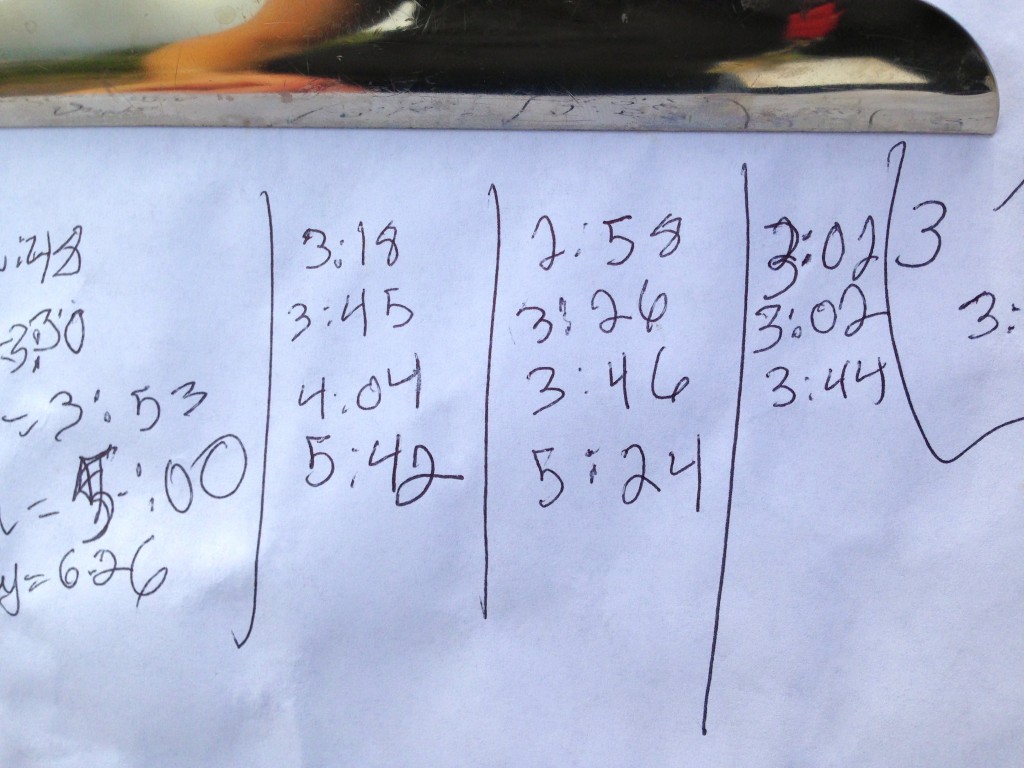 :48 3:18 2:58 3:02 3
3:30 3:45 3:26 3:02 3:
=3:53 4:04 3:46 3:44
=5:00 5:42 5:24
y=6:26